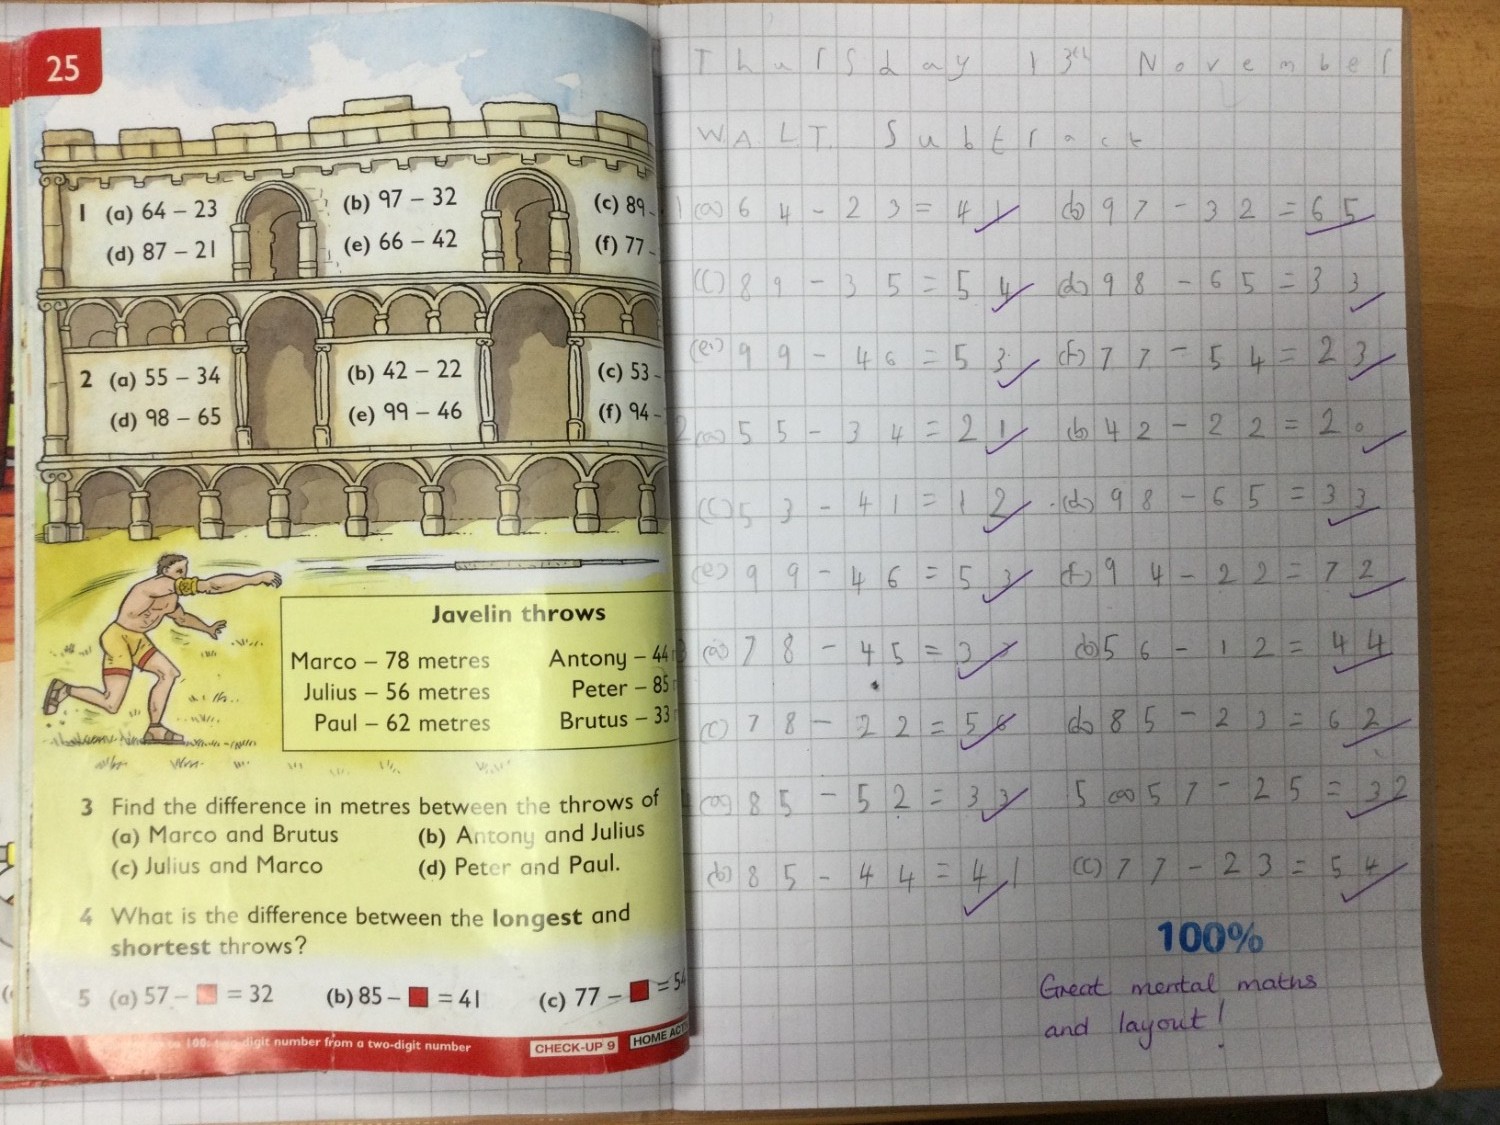 25
1 (a) 64 – 23 (b) 97 – 32 (c) 89
(d) 87 – 21 (e) 66 – 42 (f) 77
2 (a) 55 – 34 (b) 42 – 22 (c) 53 –
(d) 98 – 65 (e) 99 – 46 (f) 94 –
Javelin throws
Marco – 78 metres Antony – 44
Julius – 56 metres Peter – 85
Paul – 62 metres Brutus – 33
3 Find the difference in metres between the throws of
(a) Marco and Brutus (b) Antony and Julius
(c) Julius and Marco (d) Peter and Paul.
4 What is the difference between the longest and
shortest throws?
5 (a) 57 – = 32 (b) 85 – = 41 (c) 77 – = 54
100: two-digit number from a two-digit number CHECK-UP 9 HOME
Thursday 13th November
W.A.L.T. Subtract
1 (a) 64 - 23 = 41 (b) 97 - 32 = 65
(c) 89 - 35 = 54 (d) 98 - 65 = 33
(e) 99 - 46 = 53 (f) 77 - 54 = 23
2 (a) 55 - 34 = 21 (b) 42 - 22 = 20
(c) 53 - 41 = 12 (d) 98 - 65 = 33
(e) 99 - 46 = 53 (f) 94 - 22 = 72
(a) 78 - 45 = 33 (b) 56 - 12 = 44
(c) 78 - 22 = 56 (d) 85 - 23 = 62
(a) 85 - 52 = 33 5 (a) 57 - 25 = 32
(b) 85 - 44 = 41 (c) 77 - 23 = 54
100%
Great mental maths
and layout!